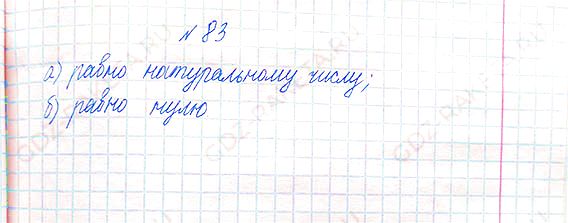 № 83
а) равно натуральному числу;
б) равно нулю
GDZ.RAKETA.RU